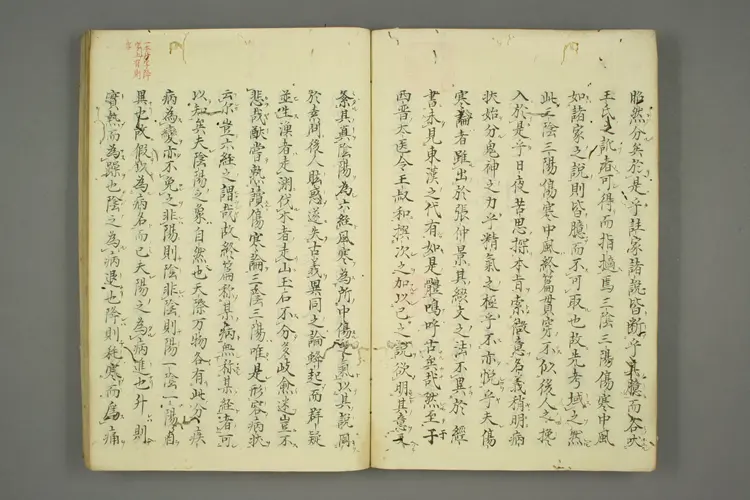 昭然分矣於是乎註家諸說皆斷乎其臆而谷
王氏之訛者可得而指摘焉三陰三陽傷寒中風
如諸家之說則皆臆而不可取也故先考域之然
此三陰三陽傷寒中風終篇貫穿不似後人之攙
入於是乎日夜苦思探本旨索微意名義稍明病
狀始分鬼神之力乎精氣之極乎不亦悅乎夫傷
寒論者雖出於張仲景其綴文之法不異於經
書未見東漢之代有如是體嗚呼古矣哉然至于
西晋太医令王叔和撰次之加以己之說欲明其意
条其真陰陽為六経風寒為所中傷以其說間
於本間後人眩惑遂失古義異同之論蜂起而群疑
並生漁者走淵伐木者走山玉石不分多岐愈迷豈不
悲哉歐嘗熟讀傷寒論三陰三陽唯是形容病状
云尓豈六経之謂哉故終篇称其病無称某経者可
以知矣夫陰陽之象自然也天際万物各有此分疾
病為変亦不免之非陽則陰非陰則陽一陰一陽自
異也故假以為病名而已夫陽之為病進也升則
實熱而為躁也陰之為病退也降則虚寒而為痛